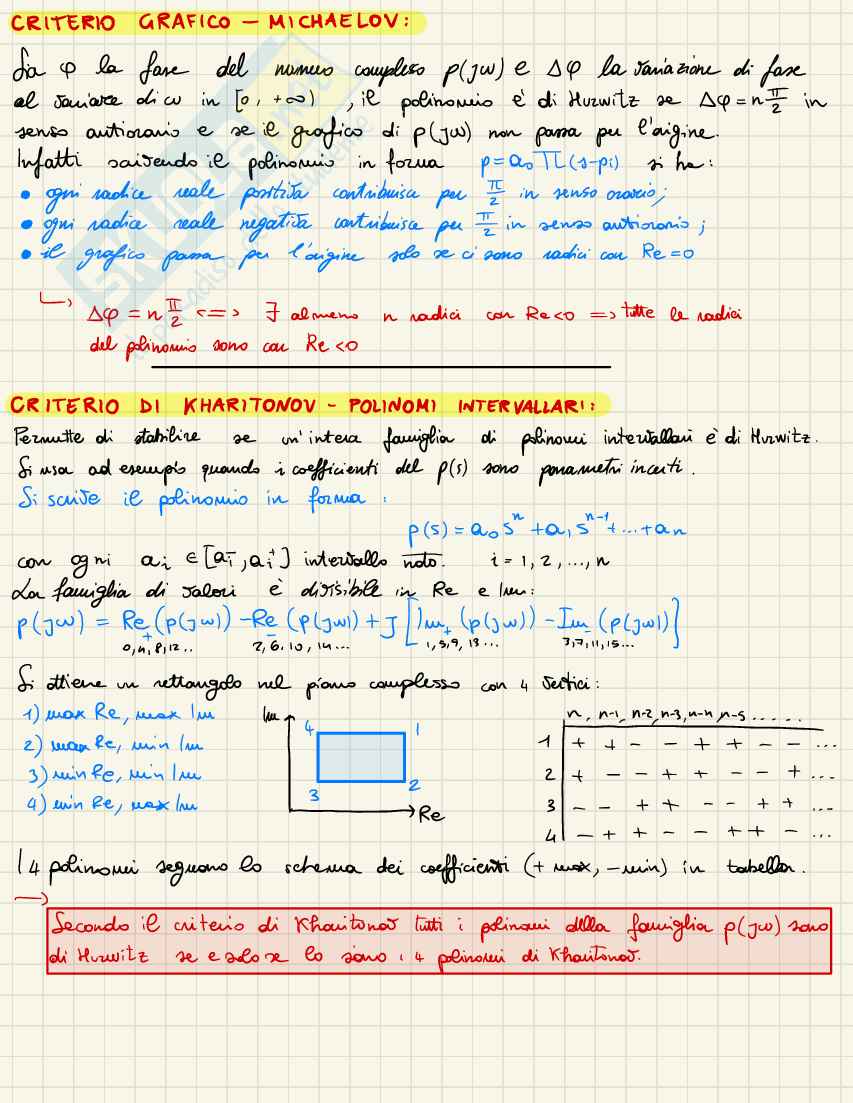 CRITERIO GRAFICO – MICHAELOV:
Sia φ la fase del numero complesso p(jω) e Δφ la variazione di fase
al variare di ω in [0, +∞), il polinomio è di Hurwitz se Δφ = n π/2 in
senso antiorario e se il grafico di p(jω) non passa per l'origine.
Infatti scrivendo il polinomio in forma p = a₀ ∏(s-pi) si ha:
• ogni radice reale positiva contribuisce per π/2 in senso orario;
• ogni radice reale negativa contribuisce per π/2 in senso antiorario;
• il grafico passa per l'origine solo se ci sono radici con Re=0
↳ Δφ = n π/2 <=> ∃ almeno n radici con Re<0 => tutte le radici
del polinomio sono con Re<0
CRITERIO DI KHARITONOV – POLINOMI INTERVALLARI:
Permette di stabilire se un'intera famiglia di polinomi intervallari è di Hurwitz.
Si usa ad esempio quando i coefficienti del p(s) sono parametri incerti.
Si scrive il polinomio in forma:
p(s) = a₀sⁿ + a₁sⁿ⁻¹ + ... + aₙ
con ogni aᵢ ∈ [aᵢ⁻, aᵢ⁺] intervallo noto. i = 1, 2, ..., n
La famiglia di valori è divisibile in Re e Im:
p(jω) = Re₊(p(jω)) - Re₋(p(jω)) + j[Im₊(p(jω)) - Im₋(p(jω))]
0,4,8,12... 2,6,10,14... 1,5,9,13... 3,7,11,15...
Si ottiene un rettangolo nel piano complesso con 4 vertici:
1) max Re, max Im
2) max Re, min Im
3) min Re, min Im
4) min Re, max Im
Im
4 1
3 2
Re
n, n-1, n-2, n-3, n-4, n-5 .....
1 + + - - + + - - ...
2 + - - + + - - + ...
3 - - + + - - + + ...
4 - + + - - + + - ...
I 4 polinomi seguono lo schema dei coefficienti (+ max, - min) in tabella.
→ Secondo il criterio di Kharitonov tutti i polinomi della famiglia p(jω) sono
di Hurwitz se e solo se lo sono i 4 polinomi di Kharitonov.